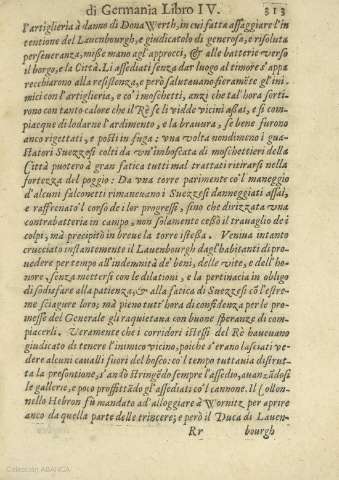 di Germania Libro IV. 313
l'artiglieria à danno di Dona Werth, in cui fatta assaggiare l'in
tentione del Lauenbourgh, e giudicatolo di generosa, e risoluta
perseueranza, misse mano agl'approcci, & alle batterie verso
il borgo, e la Città. Li assediati senza dar luogo al timore s'appa
recchiarono alla resistenza, e però salutenano fieramēte gl'ini
mici con l'artiglieria, e co'i moschetti, anzi che tal'hora sorti-
rono con tanto calore che il Rè se li vidde vicini assai, e si com-
piacque di lodarne l'ardimento, e la brauura, se bene furono
anco rigettati, e posti in fuga: vna volta nondimeno i gua-
statori Suezzesi colti da vn'imboscata di moschettieri della
Città puotero à gran fatica tutti mal trattati ritirarsi nella
fortezza del poggio: Da vna torre parimente co'l maneggio
d'alcuni falconetti rimaneuano i Suezzesi danneggiati assai,
e raffrenato'l corso de i lor progressi, sino che dirizzata vna
contrabatteria in campo, non solamente cessò il trauaglio de i
colpi, mà precipitò in breue la torre istessa. Veniua intanto
crucciato instantemente il Lauenbourgh dagl'habitanti di pro-
uedere per tempo all'indemnità de' beni, delle vite, e dell'ho-
nore, senza mettersi con le dilationi, e la pertinacia in obligo
di sodisfare alla patienza, & alla fatica di Suezzesi cō l'estre-
me sciagure loro; mà pieno tutt'hora di confidenza per le pro-
messe del Generale gli raquietana con buone speranze di com-
piacerli. Veramente che i corridori istessi del Rè haueuano
giudicato di tenere l'inimico vicino, poiche s'erano lasciati ve-
dere alcuni caualli fuori del bosco: co'l tempo tuttauia distrut-
ta la presontione, s'andò stringēdo sempre l'assedio, auanzādosi
le gallerie, e poco proffittādo gl'assediati co'l cannone. il Collon-
nello Hebron fù mandato ad'alloggiare à Wornitz per aprire
anco da quella parte delle trincere; e però il Duca di Lauen-
Rr bourgh
Colección ABANCA